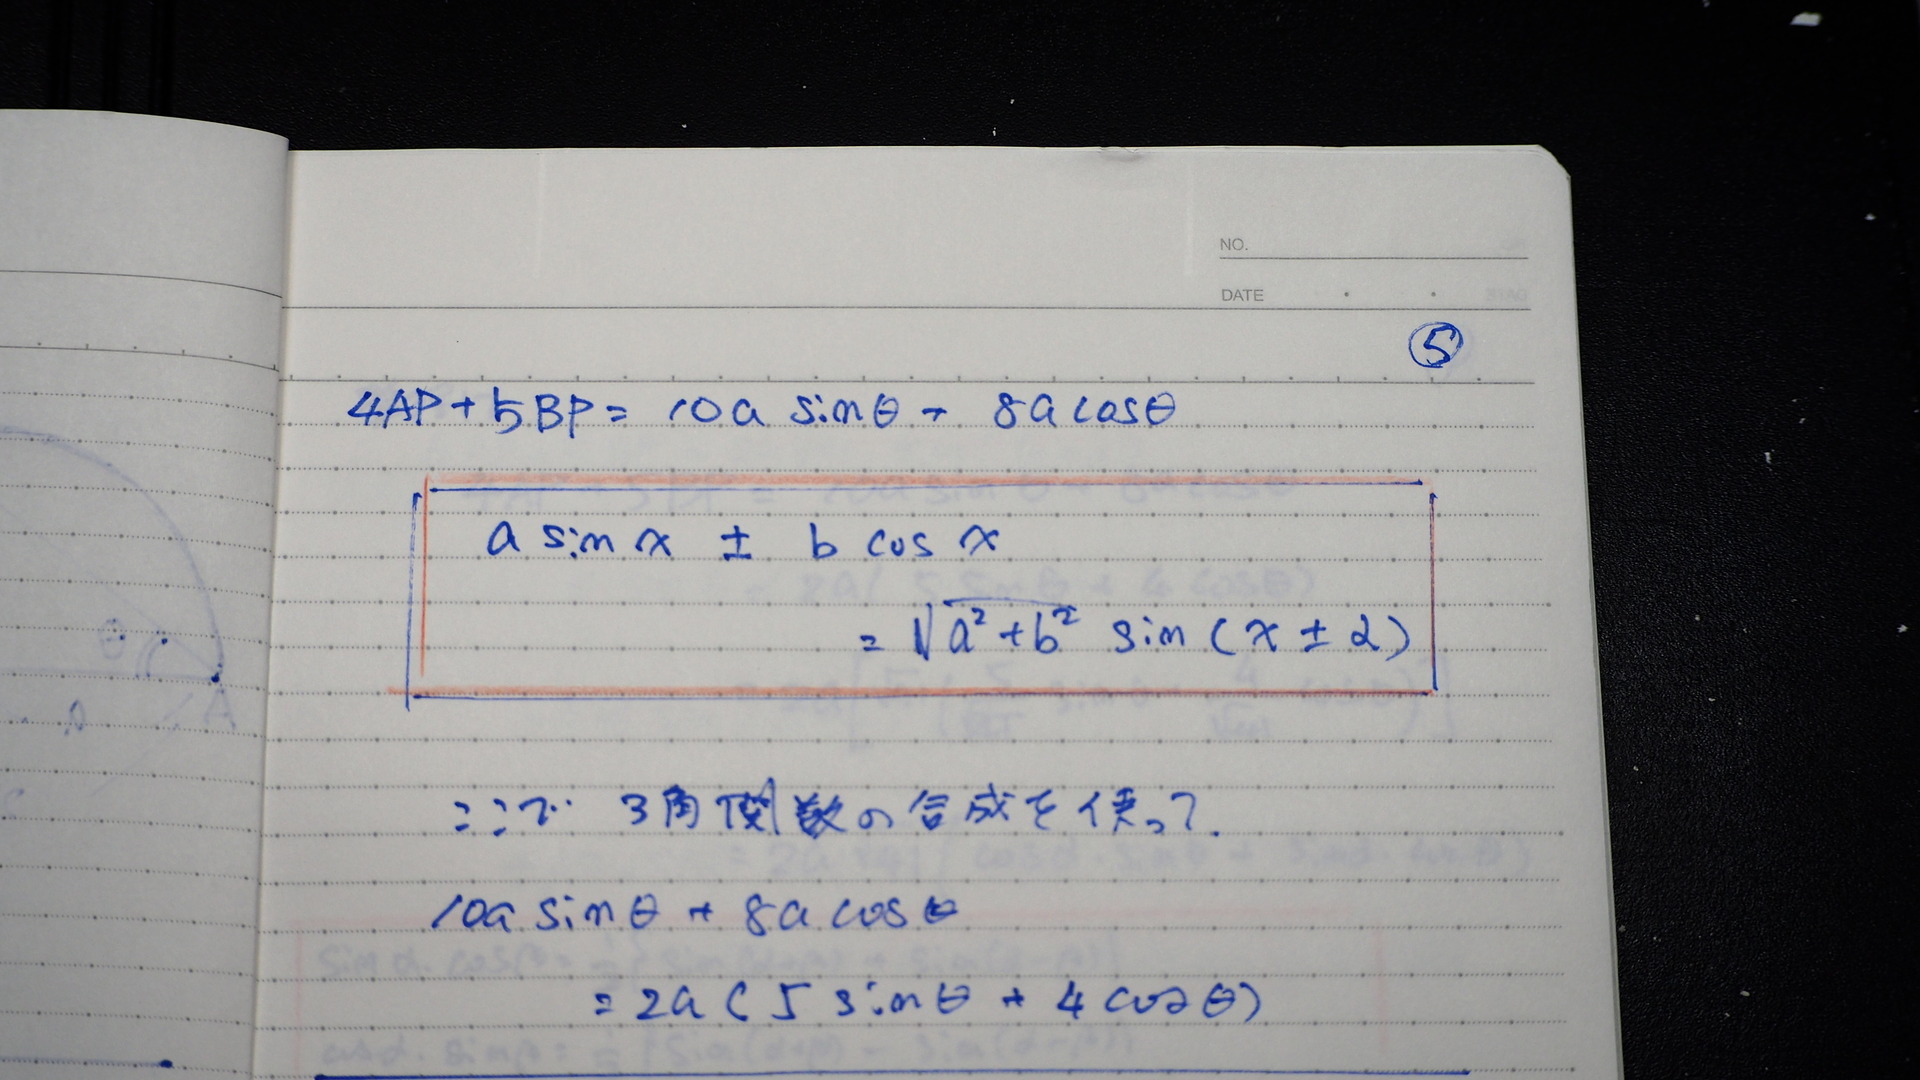 NO.
DATE
⑤
4AP+5BP= 10a sinθ + 8a cosθ
a sin x ± b cos x
= √a²+b² sin (x ± α)
ここで 3角関数の合成を使って.
10a sinθ + 8a cosθ
= 2a ( 5 sinθ + 4 cosθ)